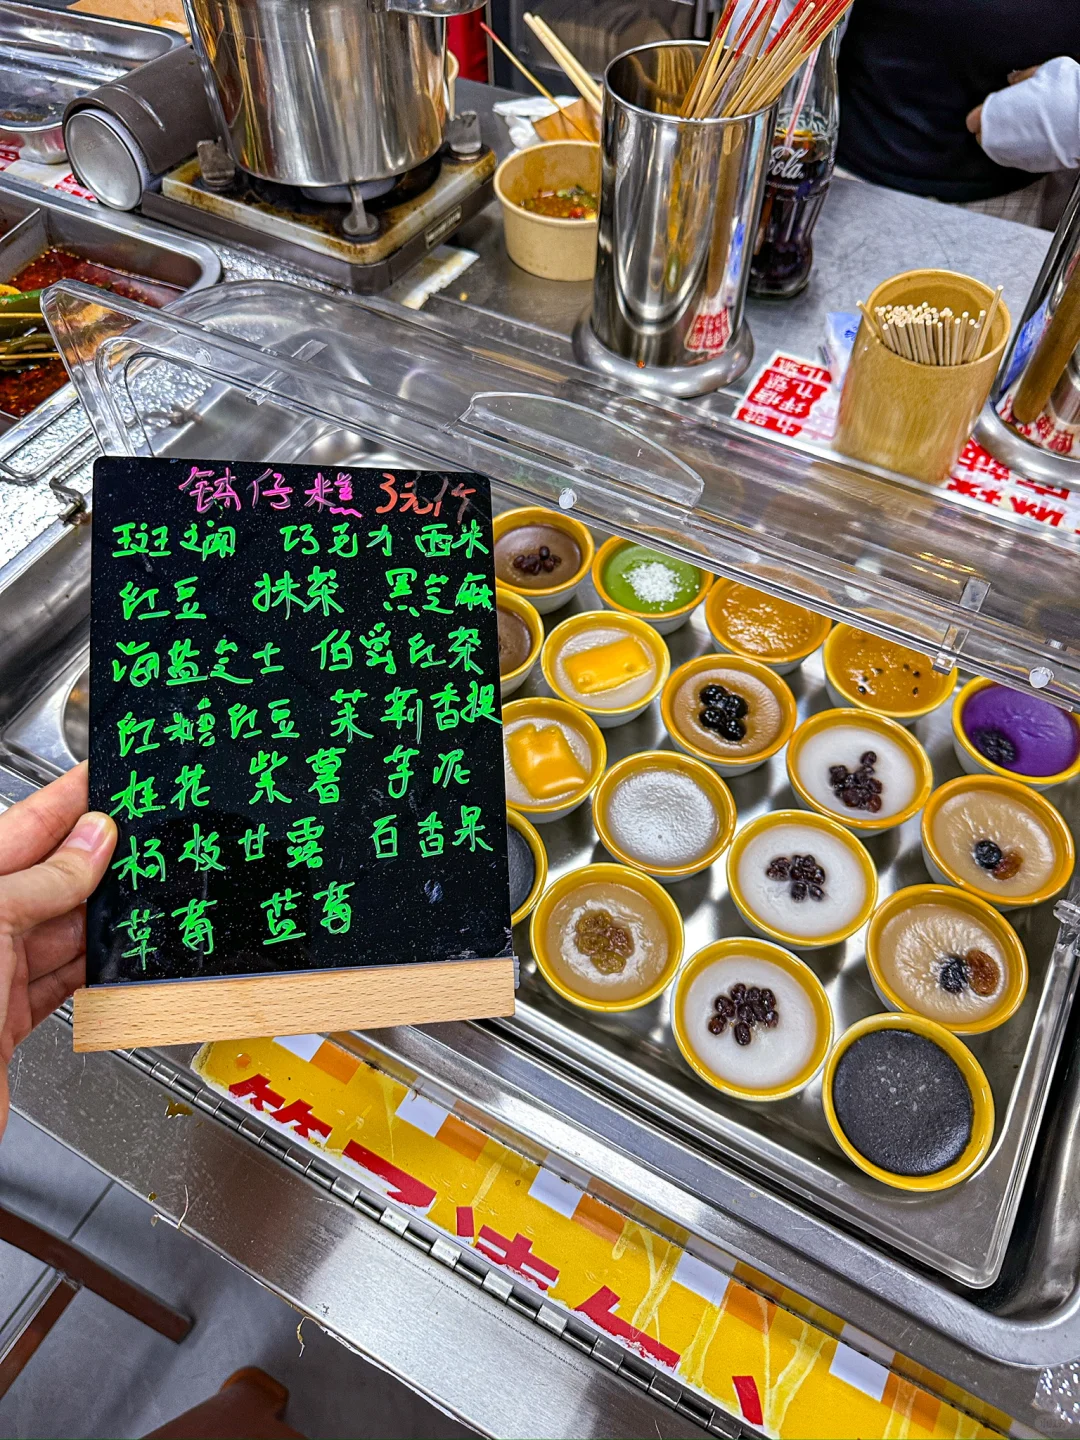 Cola
钵仔糕 3元/个
斑斓 巧克力 西米
红豆 抹茶 黑芝麻
海盐芝士 伯爵红茶
红糖红豆 茉莉香提
桂花 紫薯 芋泥
杨枝甘露 百香果
草莓 蓝莓